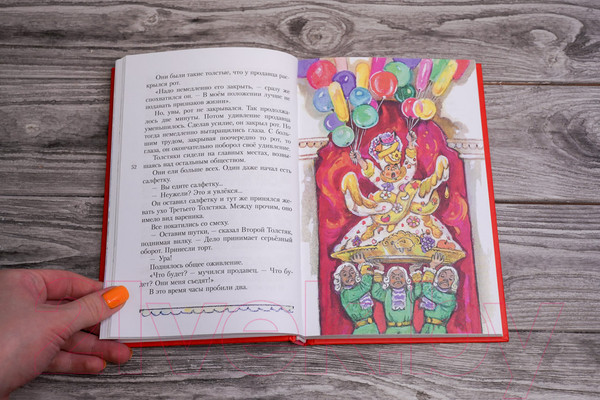 Они были такие толстые, что у продавца рас-
крылся рот.
«Надо немедленно его закрыть, — сразу же
спохватился он. — В моём положении лучше не
подавать признаков жизни».
Но, увы, рот не закрывался. Так продолжа-
лось две минуты. Потом удивление продавца
уменьшилось. Сделав усилие, он закрыл рот. Но
тогда немедленно вытаращились глаза. С боль-
шим трудом, закрывая поочередно то рот, то
глаза, он окончательно поборол своё удивление.
Толстяки сидели на главных местах, возвы-
шаясь над остальным обществом.
32
Они ели больше всех. Один даже начал есть
салфетку.
— Вы едите салфетку...
— Неужели? Это я увлёкся...
Он оставил салфетку и тут же принялся же-
вать ухо Третьего Толстяка. Между прочим, оно
имело вид вареника.
Все покатились со смеху.
— Оставим шутки, — сказал Второй Толстяк,
поднимая вилку. — Дело принимает серьёзный
оборот. Принесли торт.
— Ура!
Поднялось общее оживление.
«Что будет? — мучился продавец. — Что бу-
дет? Они меня съедят!»
В это время часы пробили два.